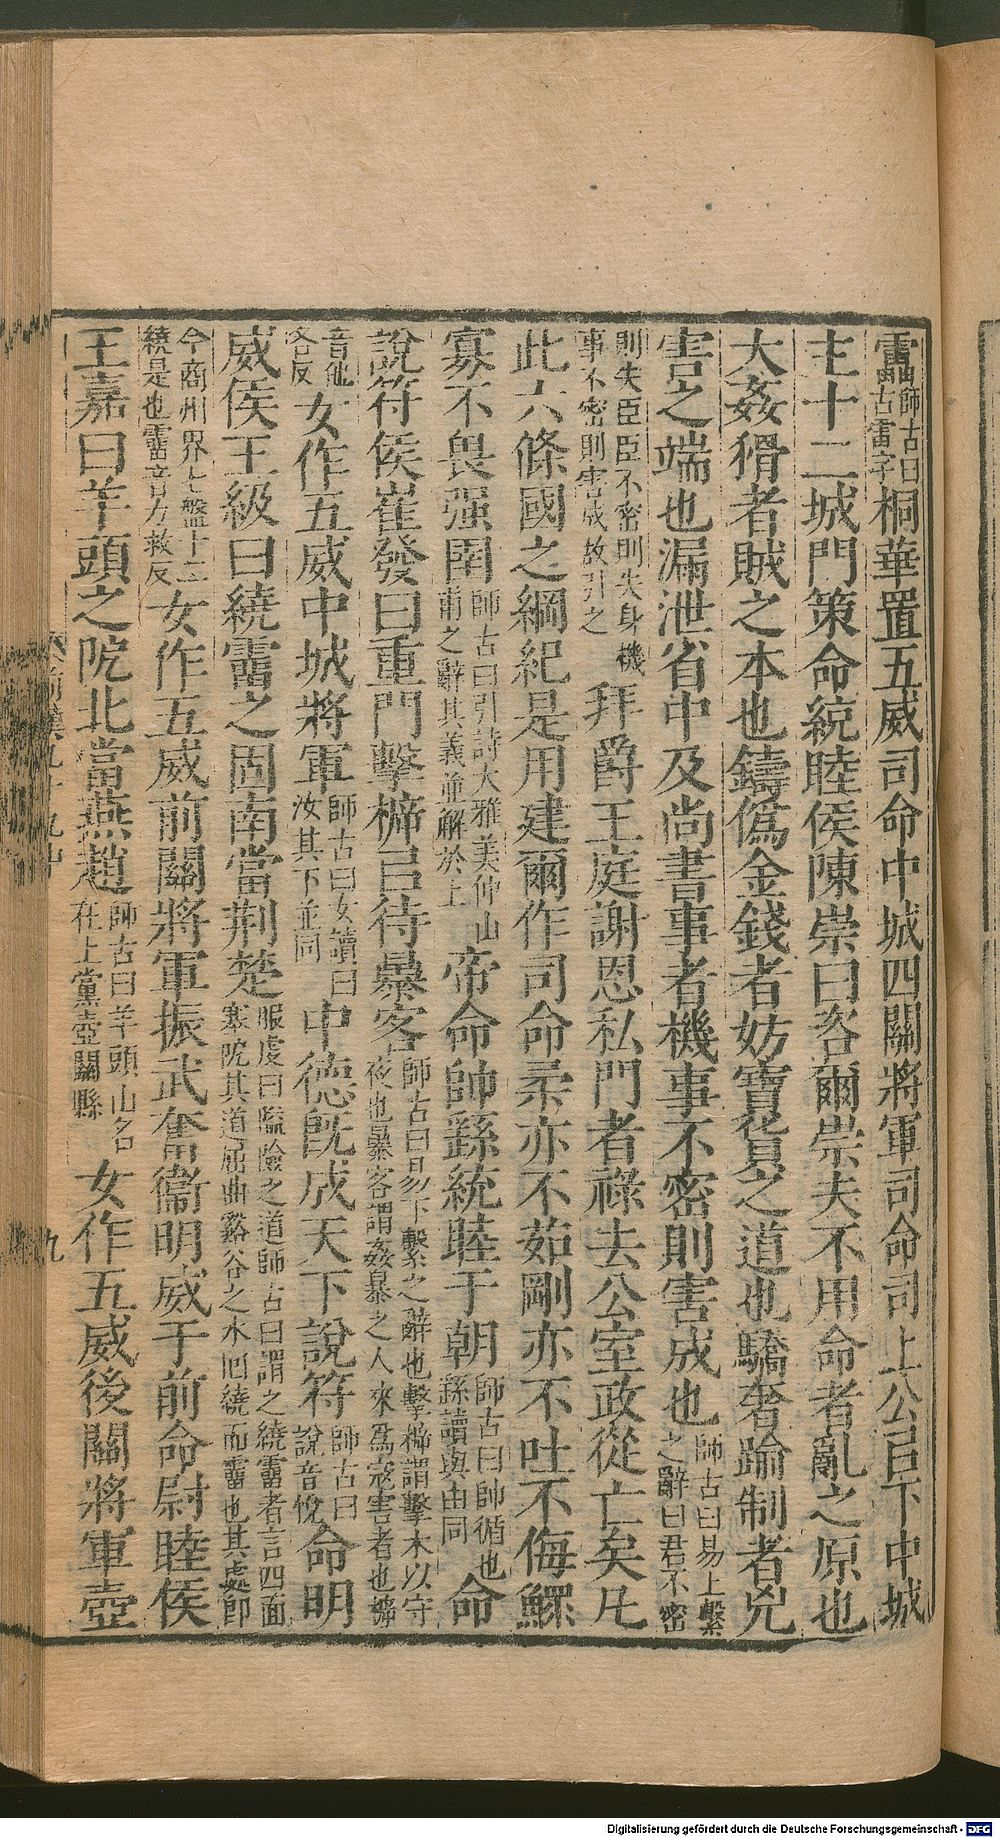 靁師古曰靁古雷字桐華置五威司命中城四關將軍司命司上公㠯下中城
主十二城門策命統睦侯陳崇曰咨爾崇夫不用命者亂之原也
大姦猾者賊之本也鑄僞金錢者妨寶貨之道也驕奢踰制者兇
害之端也漏泄省中及尚書事者機事不密則害成也師古曰易上繫之辭曰君不密
則失臣臣不密則失身機事不密則害成故引之拜爵王庭謝恩私門者祿去公室政從亡矣凡
此六條國之綱紀是用建爾作司命柔亦不茹剛亦不吐不侮鰥
寡不畏强圉師古曰引詩大雅美仲山甫之辭其義並解於上帝命帥繇統睦于朝師古曰帥循也繇讀與由同命
說符侯崔發曰重門擊㯓㠯待暴客師古曰易下繫之辭也擊㯓謂擊木以守夜也暴客謂姦暴之人來爲寇害者也㯓
音他各反女作五威中城將軍師古曰女讀曰汝其下並同中德旣成天下說符師古曰說音悅命明
威侯王級曰繞霤之固南當荆楚服虔曰隘險之道師古曰謂之繞霤者言四面塞阸其道屈曲谿谷之水囘繞而霤也其處卽
今商州界七盤十二繞是也霤音力救反女作五威前關將軍振武奮衞明威于前命尉睦侯
王嘉曰羊頭之阸北當燕趙師古曰羊頭山名在上黨壺關縣女作五威後關將軍壺
九
Digitalisierung gefördert durch die Deutsche Forschungsgemeinschaft - DFG